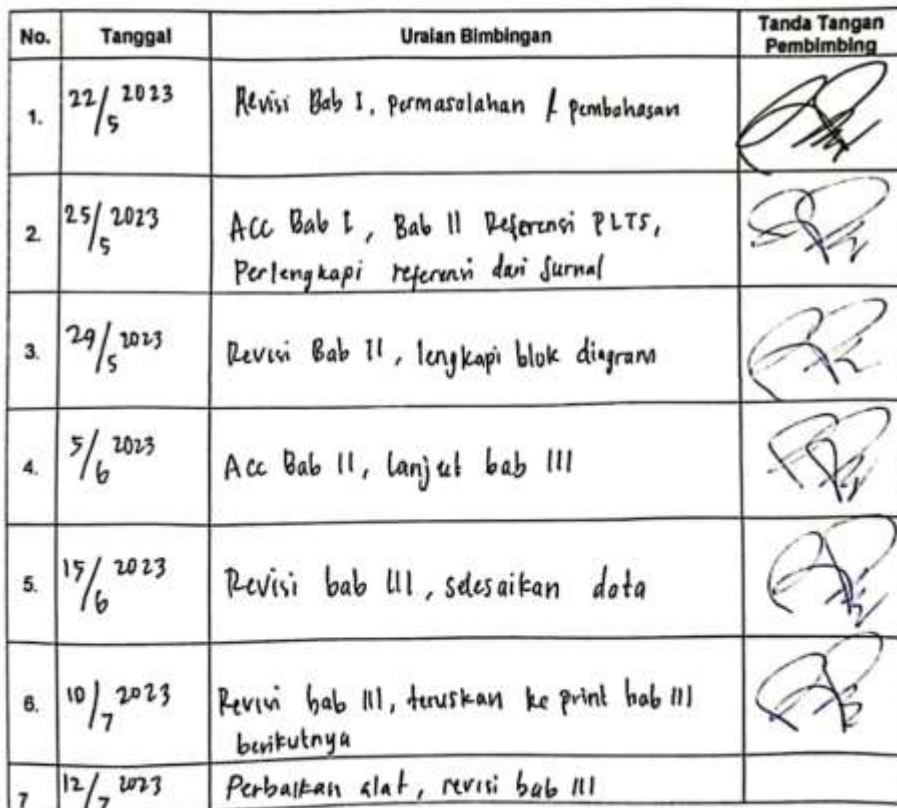 No. Tanggal Uraian Bimbingan Tanda Tangan Pembimbing
1. 22/5 2023 Revisi Bab I, permasalahan & pembahasan
2. 25/5 2023 Acc Bab I, Bab II Referensi PLTS,
Perlengkapi referensi dari Jurnal
3. 29/5 2023 Revisi Bab II, lengkapi blok diagram
4. 5/6 2023 Acc Bab II, lanjut bab III
5. 15/6 2023 Revisi bab III, selesaikan data
6. 10/7 2023 Revisi bab III, teruskan ke print bab III
berikutnya
7 12/7 2023 Perbaikan alat, revisi bab III